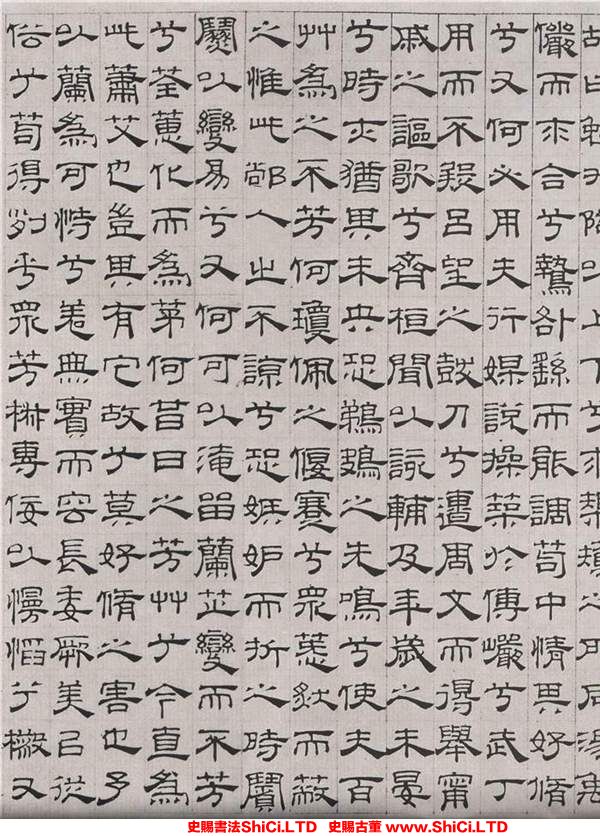 故曰勉升降以上下兮求榘矱之所同湯禹
儼而求合兮摯咎繇而能調苟中情其好脩
兮又何必用夫行媒說操築於傅巖兮武丁
用而不疑呂望之鼓刀兮遭周文而得舉甯
戚之謳歌兮齊桓聞以該輔及年歲之未晏
兮時亦猶其未央恐鵜鴂之先鳴兮使夫百
艸為之不芳何瓊佩之偃蹇兮眾薆然而蔽
之惟此黨人之不諒兮恐嫉妒而折之時繽
紛以變易兮又何可以淹留蘭芷變而不芳
兮荃蕙化而為茅何昔日之芳艸兮今直為
此蕭艾也豈其有它故兮莫好脩之害也予
以蘭為可恃兮羌無實而容長委厥美以從
俗兮苟得列乎眾芳椒專佞以慢慆兮樧又
史賜書法ShiCi.LTD 史賜古董 www.ShiCi.LTD